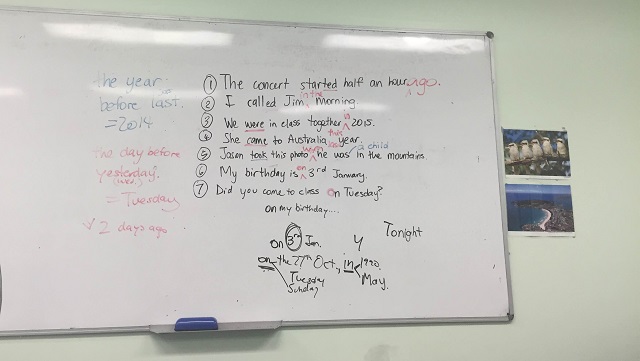 the year
before last.
= 2014
the day before
yesterday.
(wed.)
= Tuesday
2 days ago
① The concert started half an hour ago.
② I called Jim in the morning.
③ We were in class together in 2015.
④ She came to Australia this year.
⑤ Jason took this photo when he was in the mountains.
a child
⑥ My birthday is on 3rd January.
⑦ Did you come to class on Tuesday?
on my birthday....
on 3rd Jan.
Tonight
on the 27th Oct, in 1990
May.
Tuesday
Sunday